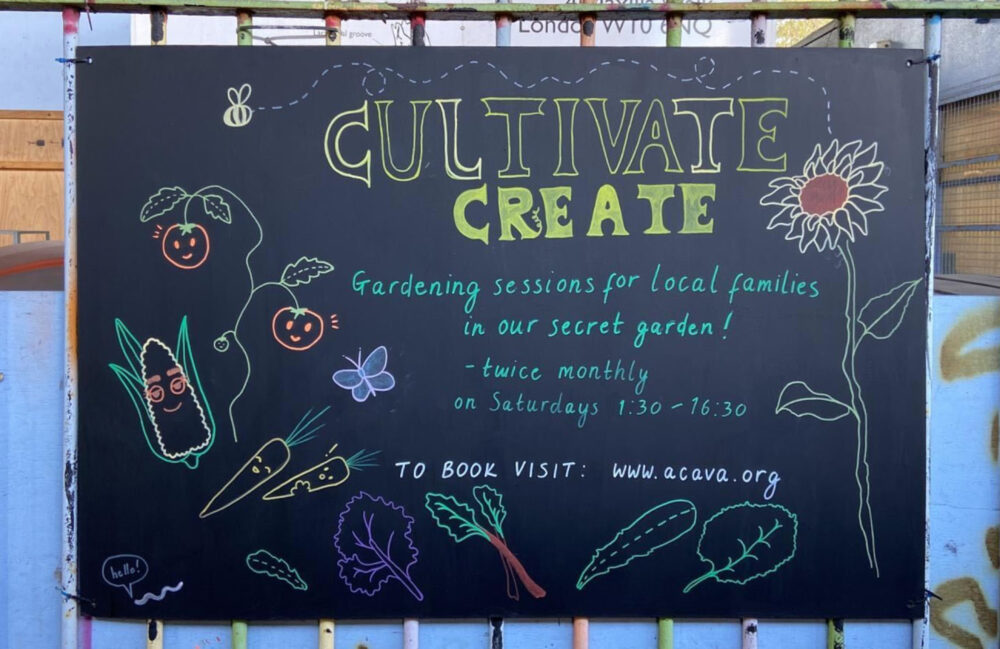 London W10
CULTIVATE
CREATE
Gardening sessions for local families
in our secret garden!
- twice monthly
on Saturdays 1:30 - 16:30
TO BOOK VISIT: www.acava.org
hello!